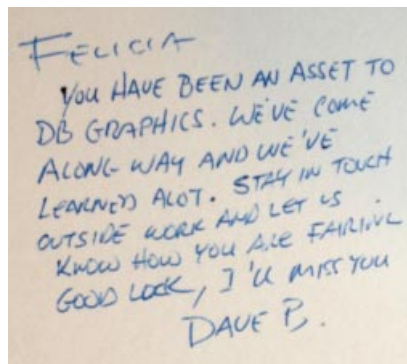 FELICIA
YOU HAVE BEEN AN ASSET TO
DB GRAPHICS. WE'VE COME
ALONG WAY AND WE'VE
LEARNED ALOT. STAY IN TOUCH
OUTSIDE WORK AND LET US
KNOW HOW YOU ARE FAIRING
GOOD LOCK, I'LL MISS YOU
DAVE B.